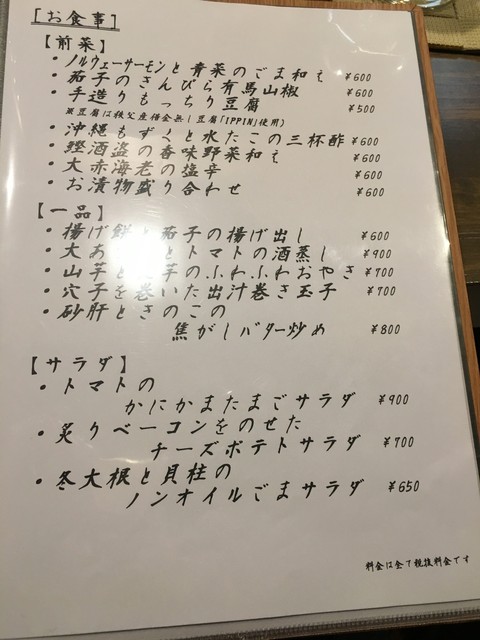 [お食事]
【前菜】
・ノルウェーサーモンと青菜のごま和え ¥600
・茄子のきんぴら有馬山椒 ¥600
・手造りもっちり豆腐 ¥500
※豆腐は秩父産 無し豆腐「IPPIN」使用)
・沖縄もずくと水たこの三杯酢 ¥600
・鰹酒盗の香味野菜和え ¥600
・大赤海老の塩辛 ¥600
・お漬物盛り合わせ ¥600
【一品】
・揚げ餅と茄子の揚げ出し ¥600
・大あ とトマトの酒蒸し ¥900
・山芋と 芋のふわふわおやき ¥700
・穴子を巻いた出汁巻き玉子 ¥700
・砂肝ときのこの
焦がしバター炒め ¥800
【サラダ】
・トマトの
かにかまたまごサラダ ¥900
・炙りベーコンをのせた
チーズポテトサラダ ¥700
・冬大根と貝柱の
ノンオイルごまサラダ ¥650
料金は全て税抜料金です